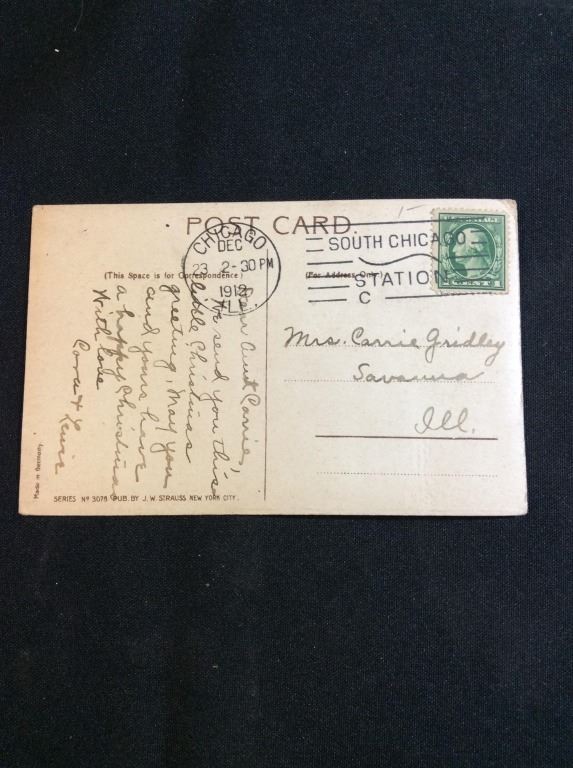 POST CARD.
CHICAGO
DEC
23 2-30 PM
1912
ILL.
SOUTH CHICAGO
STATION
C
(This Space is for Correspondence)
(For Address Only)
Dear Aunt Carrie,
We send you this
little Christmas
greeting. May you
and yours have
a happy Christmas
With love
Cora &
Mrs. Carrie Gridley
Savanna
Ill.
Made in Germany
SERIES No 3078 PUB. BY J. W. STRAUSS NEW YORK CITY.